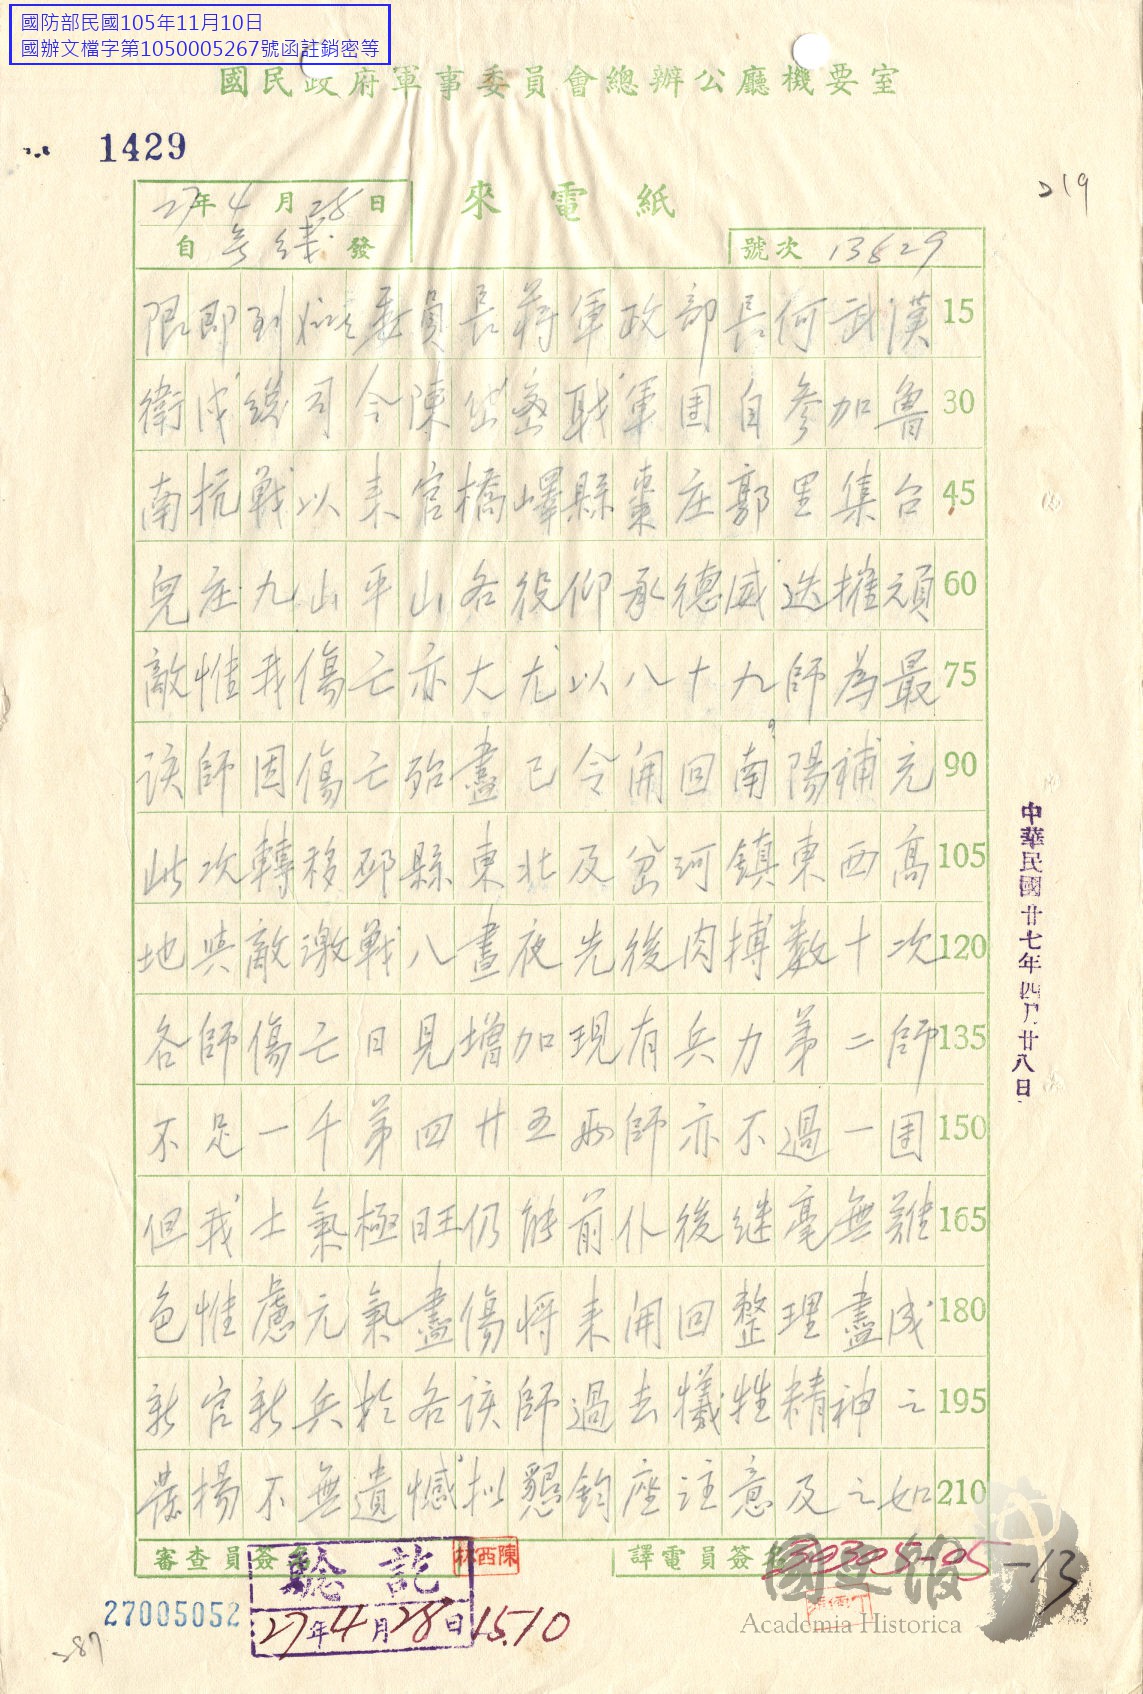 國防部民國105年11月10日
國辦文檔字第1050005267號函註銷密等
國民政府軍事委員會總辦公廳機要室
1429
219
來電紙
27年4月28日
自無綫發
號次 13829
限即到 委員長蔣軍政部長何武漢 15
衛戍總司令陳 密職軍團自參加魯 30
南抗戰以来官橋嶧縣棗庄郭里集台 45
兒庄九山平山各役仰承德威迭摧頑 60
敵惟我傷亡亦大尤以八十九師為最 75
該師因傷亡殆盡已令開回南陽補充 90
此次轉移邳縣東北及岔河鎮東西高 105
地與敵激戰八晝夜先後肉搏数十次 120
各師傷亡日見增加現有兵力第二師 135
不足一千第四廿五兩師亦不過一團 150
但我士氣極旺仍能前仆後继毫無難 165
色惟慮元氣盡傷将来開回整理盡成 180
新官新兵於各該師過去犧牲精神之 195
發揚不無遺憾拟懇鈞座注意及之如 210
中華民國廿七年四月廿八日
審查員簽名
陳西林
譯電員簽名
30305-05-13
驗訖
27年4月28日 15.10
27005052
287
國史館
Academia Historica